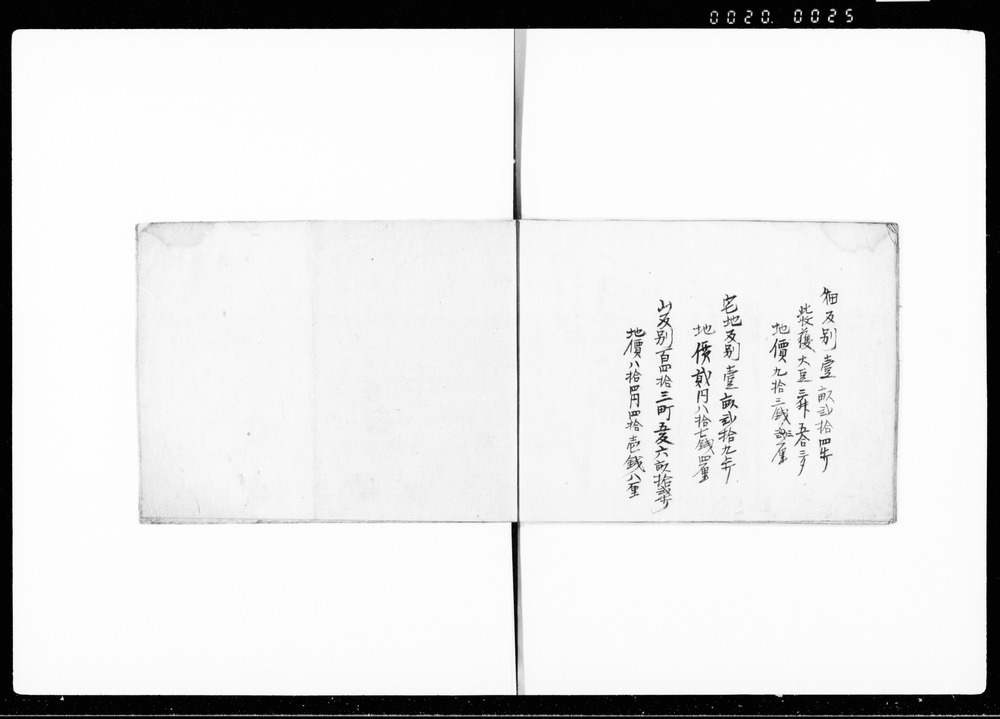 0020. 0025
畑反別壹畝貳拾四步
此收穫大豆三舛五合三夕
地價九拾三錢 厘
宅地反別壹畝貳拾九步
地價貳円八拾七錢四厘
山反別百四拾三町五反六畝拾貳步
地價八拾四円四拾壱錢八厘